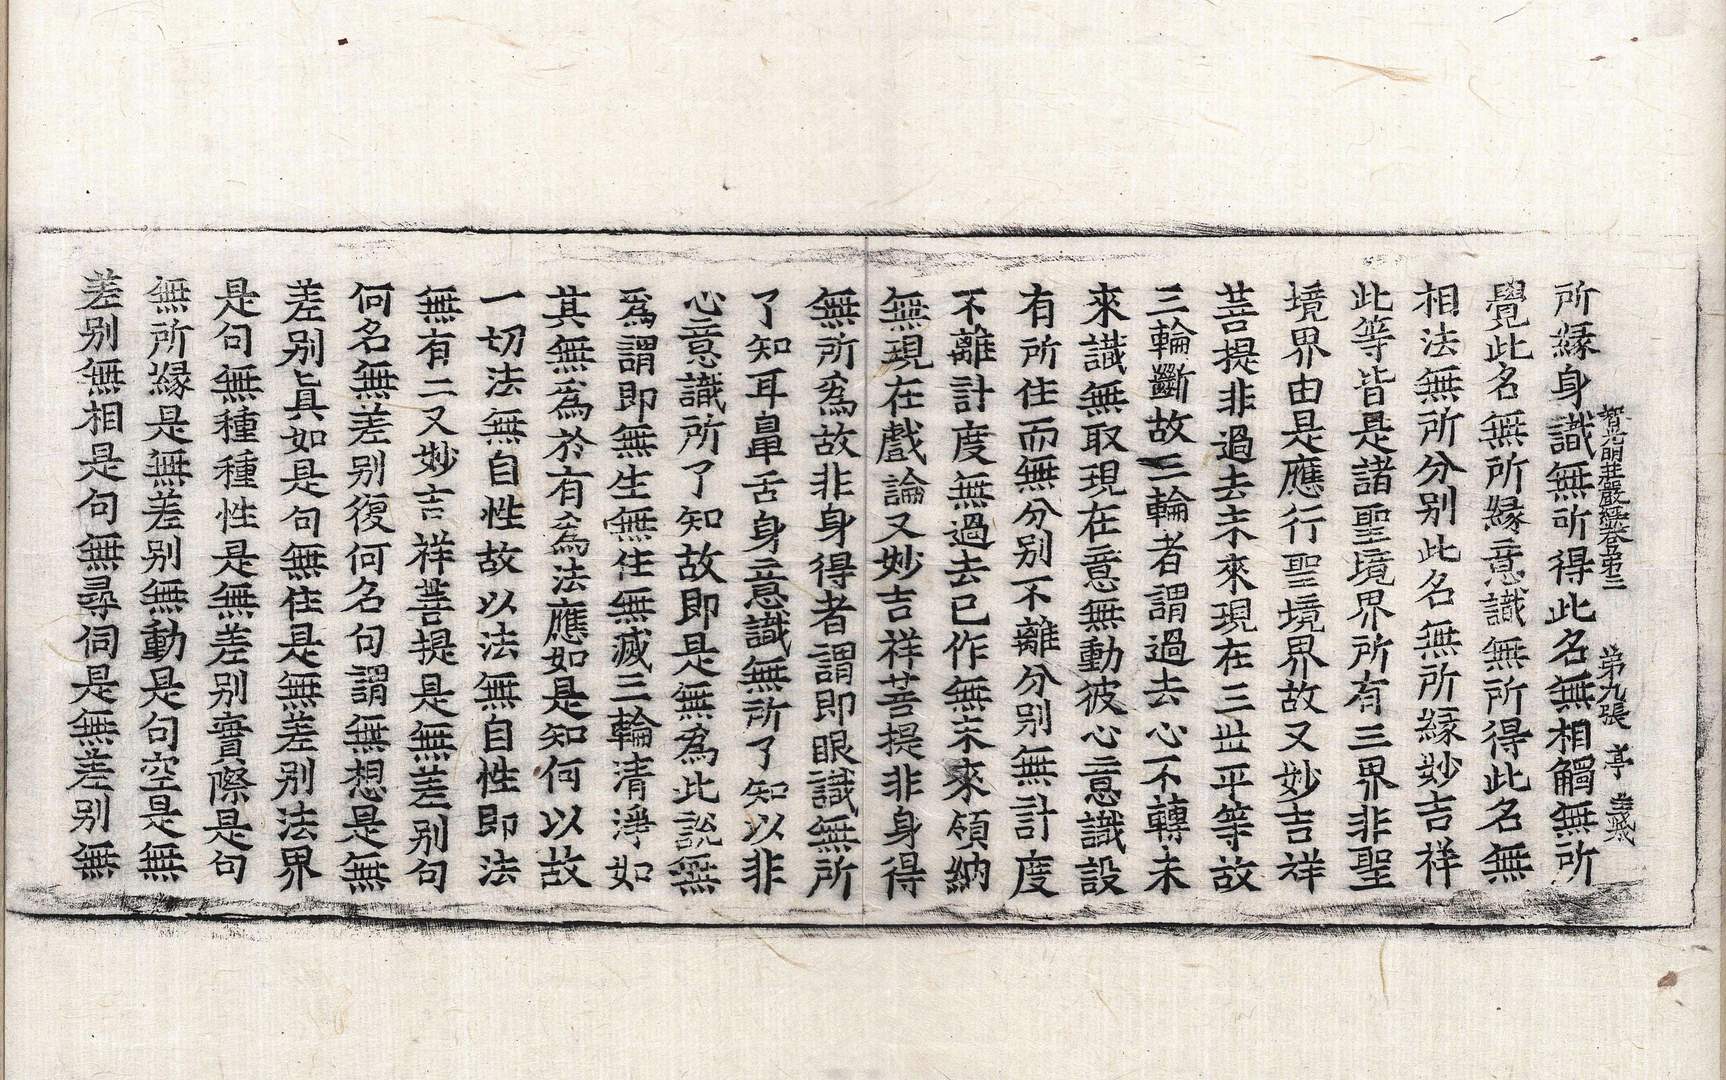 智光明莊嚴經卷第三 第九張 亭
所緣身識無所得此名無相觸無所
覺此名無所緣意識無所得此名無
相法無所分别此名無所緣妙吉祥
此等皆是諸聖境界所有三界非聖
境界由是應行聖境界故又妙吉祥
菩提非過去未來現在三世平等故
三輪斷故三輪者謂過去心不轉未
來識無取現在意無動彼心意識設
有所住而無分别不離分别無計度
不離計度無過去已作無未來領納
無現在戲論又妙吉祥菩提非身得
無所爲故非身得者謂即眼識無所
了知耳鼻舌身意識無所了知以非
心意識所了知故即是無爲此說無
爲謂即無生無住無滅三輪清淨如
其無爲於有爲法應如是知何以故
一切法無自性故以法無自性即法
無有二又妙吉祥菩提是無差别句
何名無差别復何名句謂無想是無
差别眞如是句無住是無差别法界
是句無種種性是無差别實際是句
無所緣是無差别無動是句空是無
差别無相是句無尋伺是無差别無